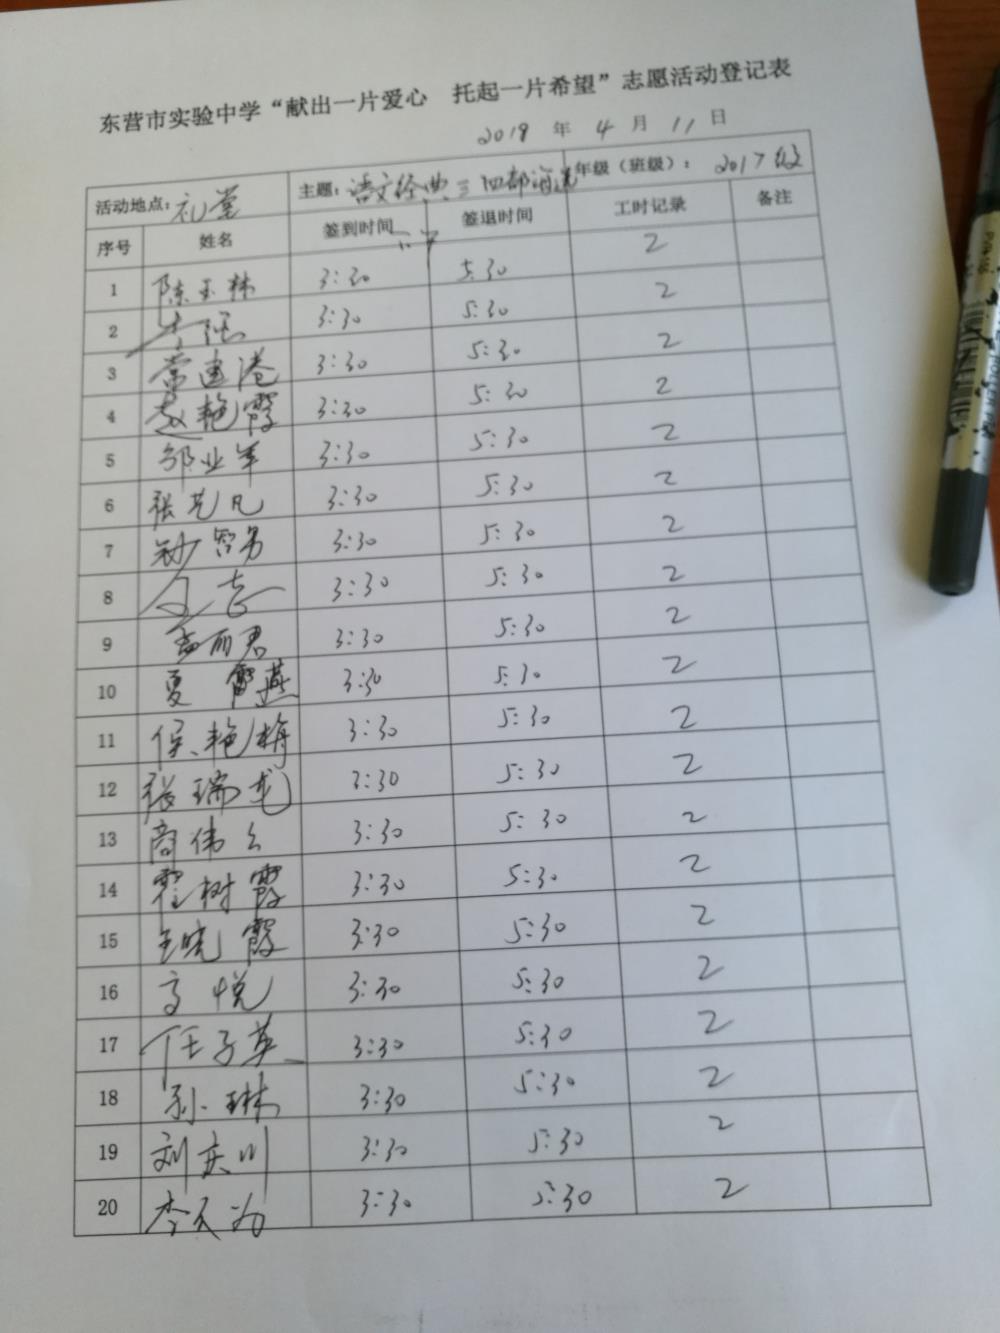 东营市实验中学“献出一片爱心 托起一片希望”志愿活动登记表
2018 年 4 月 11 日
活动地点：礼堂 主题：语文经典三四部诵读 年级（班级）：2017级
序号 姓名 签到时间 签退时间 工时记录 备注
1 陈玉林 3:30 5:30 2
2 3:30 5:30 2
3 常建港 3:30 5:30 2
4 赵艳霞 3:30 5:30 2
5 邹业军 3:30 5:30 2
6 张艺凡 3:30 5:30 2
7 3:30 5:30 2
8 3:30 5:30 2
9 孟雨君 3:30 5:30 2
10 夏 燕 3:30 5:30 2
11 侯艳梅 3:30 5:30 2
12 张瑞龙 3:30 5:30 2
13 商伟 3:30 5:30 2
14 霍树霞 3:30 5:30 2
15 王晓霞 3:30 5:30 2
16 高悦 3:30 5:30 2
17 任子英 3:30 5:30 2
18 孙琳 3:30 5:30 2
19 刘庆川 3:30 5:30 2
20 李天为 3:30 5:30 2